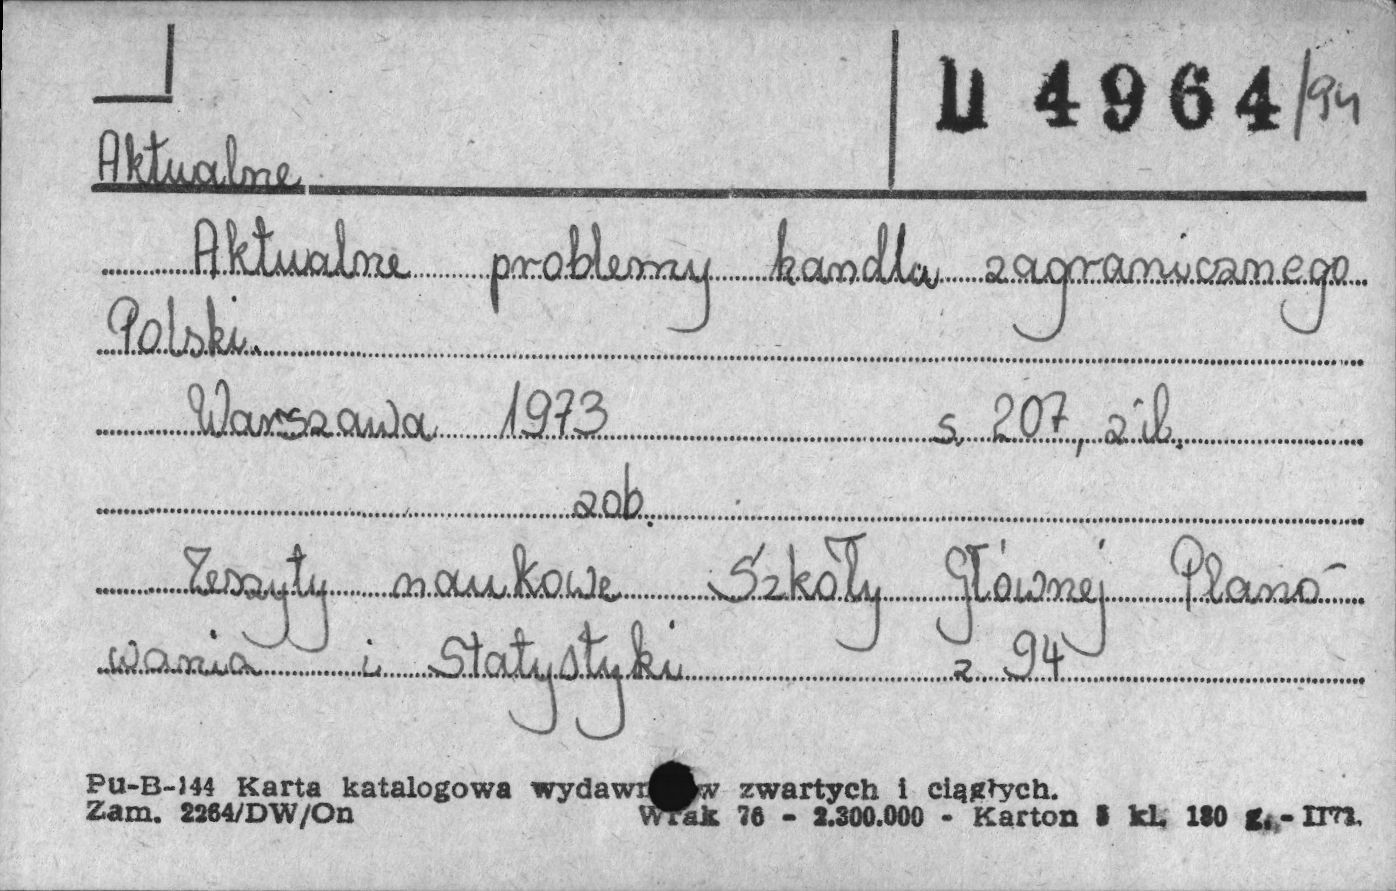 U 4964/94
Aktualne
Aktualne problemy handlu zagranicznego
Polski.
Warszawa 1973 s. 207, zil.
zob.
Zeszyty naukowe Szkoły Głównej Plano-
wania i Statystyki z 94
Pu-B-144 Karta katalogowa wydawn w zwartych i ciągłych.
Zam. 2264/DW/On Wrak 76 - 2.300.000 - Karton 5 kl. 180 g. -